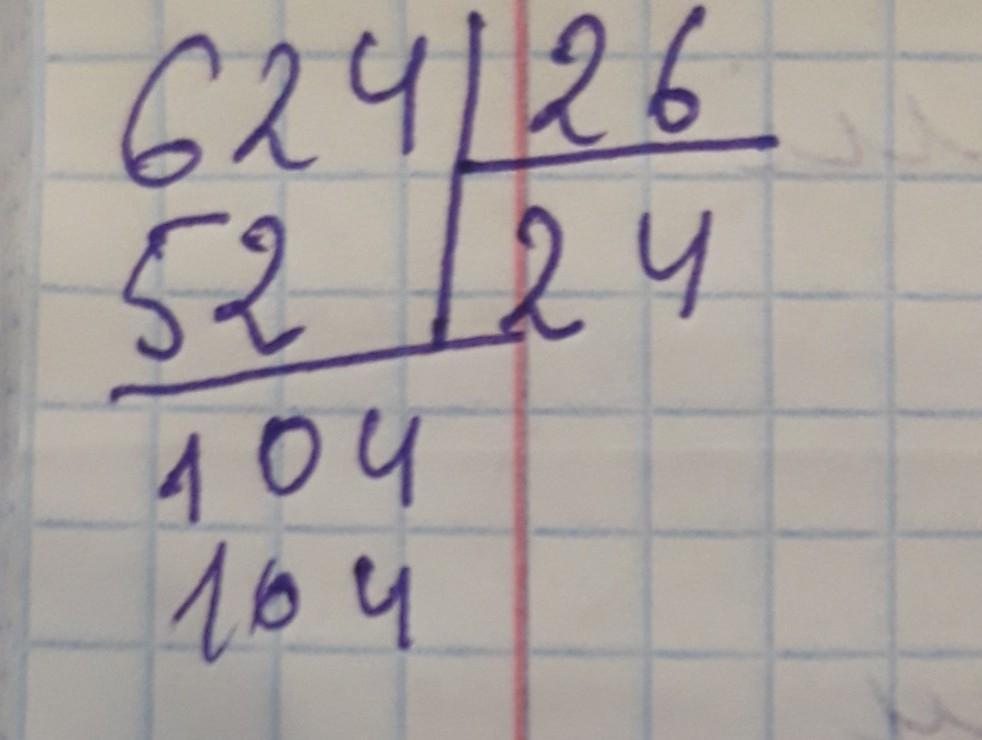 624 26
52 24
104
104